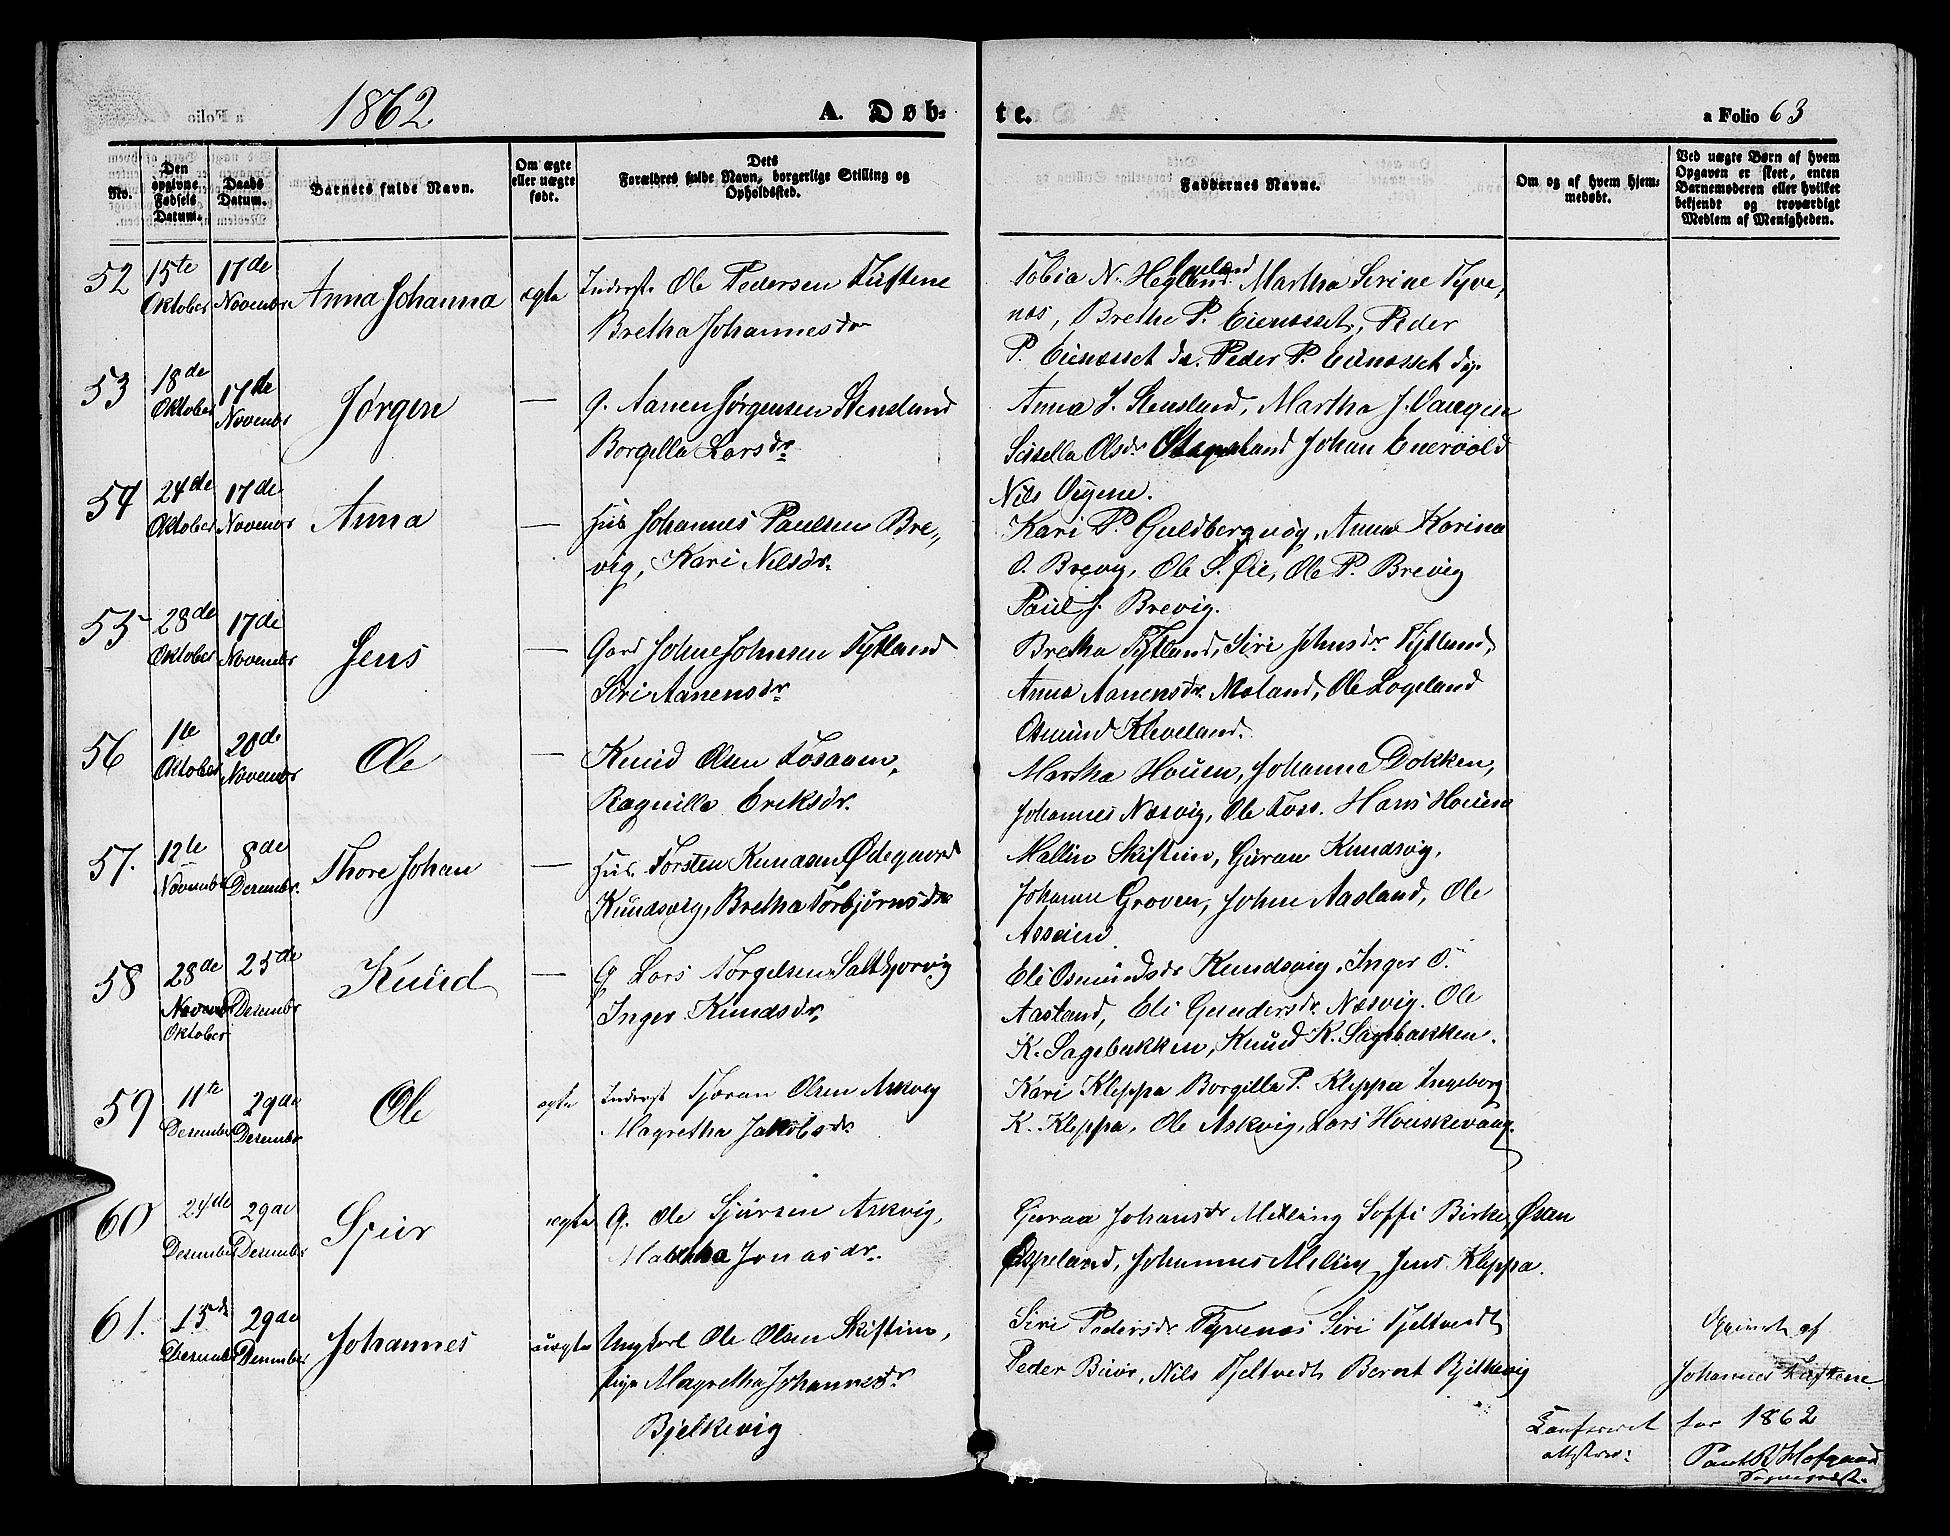 1862. A. Døb- te. a Folio 63
No.
Den opgivne Fødsels Datum.
Daabs Datum.
Barnets fulde Navn.
Om ægte eller uægte født.
Dets Forældres fulde Navn, borgerlige Stilling og Opholdssted.
Faddernes Navne.
Om og af hvem hjemmedøbt.
Ved uægte Børn af hvem Opgaven er skeet, enten Barnemoderen eller hvilket bekjendt og troværdigt Medlem af Menigheden.
52 15te Oktober 17de Novembr Anna Johanna ægte Inderst. Ole Pedersen
Bretha Johannesdr
Tobia N. Hegland Martha Serine Tyve,
nes, Brethe P. Peder
P. Peder P.
53 18de Oktober 17de Novembr Jørgen — G. Aanen Jørgensen Stensland
Borgilla Larsdr.
Anna J. Stensland, Martha J.
Sissella Olsdr Johan
Nils
54 24de Oktober 17de Novembr Anna — Hus Johannes Paulsen Bre,,
vig, Kari Nilsdr.
Kari P. Anna Karina
O. Brevig, Ole S. Øie, Ole P. Brevig
Paul J. Brevig.
55 28de Oktober 17de Novembr Jens — Gard Johne Johnsen Tytland
Siri Aanensdr.
Bretha Tytland, Siri Johnsdr Tytland,
Anna Aanensdr. Moland, Ole Logeland
Osmund Kleveland.
56 1te Oktober 20de Novembr Ole — Knud Olsen
Ragnille Eriksdr.
Martha Houen, Johanne Dokken,
Johannes Næsvig, Ole Foss. Hans Houen
57. 12te Novembr 8de Desembr. Thore Johan — Hus. Torsten Knudsen Ødegaard
Knudsvig, Bretha Torbjørnsdr
Mallin Skiftun, Guraa Knudsvig,
Johanne Groven, Johne Aasland, Ole
58 28de Novembr Oktober 25de Desembr Knud — G Lars Torgelsen
Inger Knudsdr.
Eli Osmundsdr Knudsvig, Inger O.
Aasland, Eli Gundersdr. Næsvig. Ole
K. Sagebakken, Knud K. Sagebakken.
59 11te Desember 29de Desembr Ole ægte Inderst Tjøran Olsen Askvig
Magretha Jakobsdr
Kari Kleppa Borgilla P. Kleppa Ingeborg
K. Kleppa, Ole Askvig, Lars
60 24de Desember 29de Desember Sjur ægte G. Ole Sjursen Askvig,
Jonasdr.
Guraa Johansdr Soffi Birke, Øran
Espeland, Johannes Jens Kleppa.
61. 15d Desember 29de Desember Johannes uægte Ungkarl Ole Olsen Skiftun,
Pige Magretha Johannesdr
Bjelkevig
Siri Pedersdr Tyvenes Siri Tjeltvedt
Peder Nils Tjeltvedt Berent Bjelkevig
af
Johannes
Konfereret for 1862
Paul Hofgaard
Sognepræst.